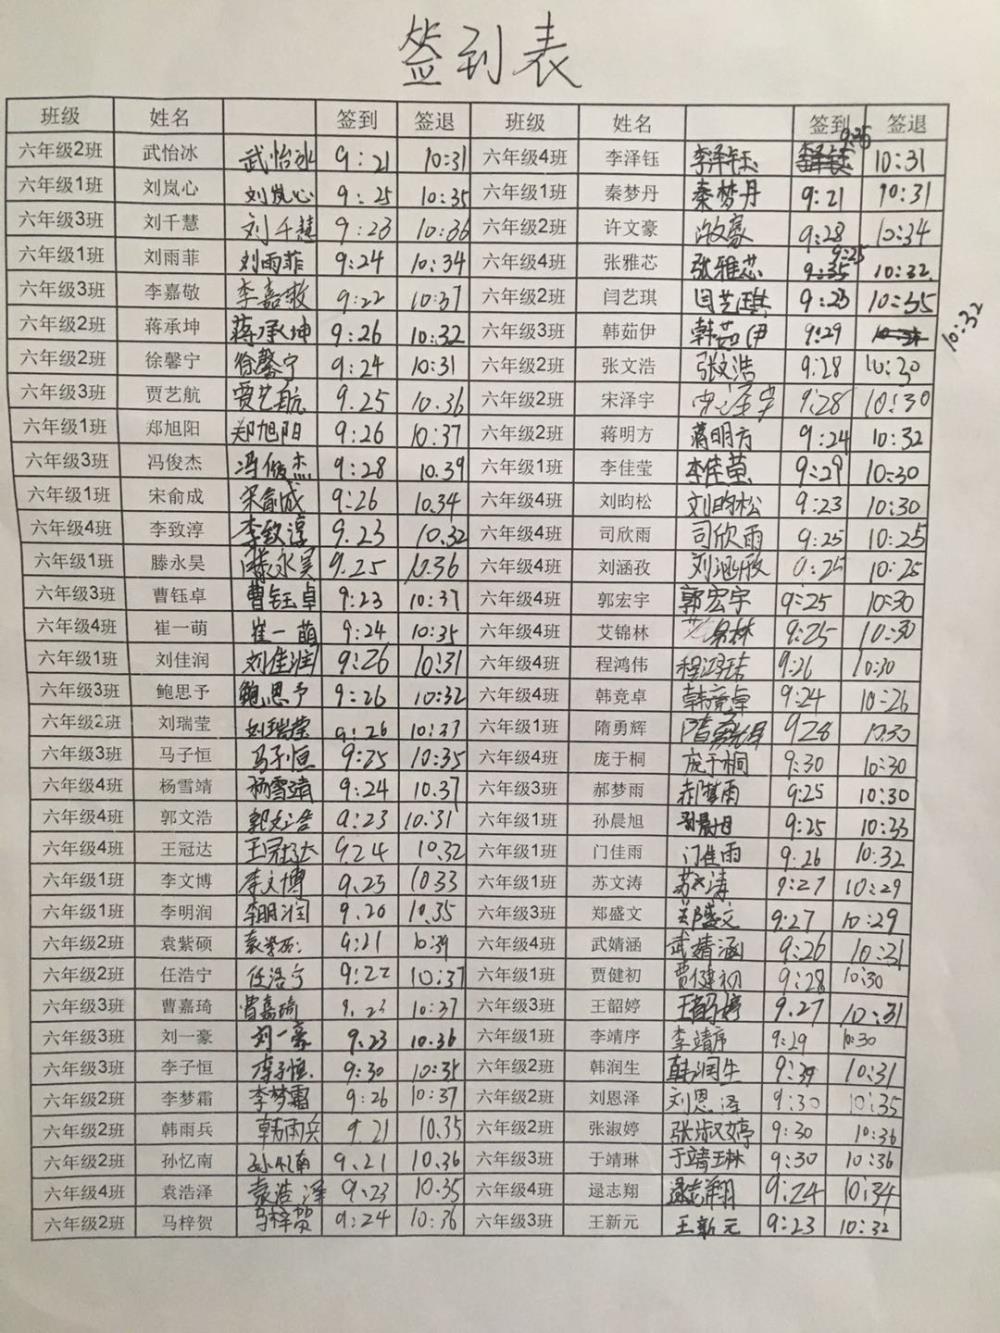 签到表
班级 姓名 签到 签退 班级 姓名 签到 签退
六年级2班 武怡冰 武怡冰 9:21 10:31 六年级4班 李泽钰 李泽钰 9:26 10:31
六年级1班 刘岚心 刘岚心 9:25 10:35 六年级1班 秦梦丹 秦梦丹 9:21 10:31
六年级3班 刘千慧 刘千慧 9:23 10:36 六年级2班 许文豪 许文豪 9:28 10:34
六年级1班 刘雨菲 刘雨菲 9:24 10:34 六年级4班 张雅芯 张雅芯 9:25 10:32
六年级3班 李嘉敬 李嘉敬 9:22 10:37 六年级2班 闫艺琪 闫艺琪 9:23 10:35
六年级2班 蒋承坤 蒋承坤 9:26 10:32 六年级3班 韩茹伊 韩茹伊 9:29 10:32
六年级2班 徐馨宁 徐馨宁 9:24 10:31 六年级2班 张文浩 张文浩 9:28 10:30
六年级3班 贾艺航 贾艺航 9.25 10.36 六年级2班 宋泽宇 宋泽宇 9:28 10:30
六年级1班 郑旭阳 郑旭阳 9:26 10:37 六年级2班 蒋明方 蒋明方 9:24 10:32
六年级3班 冯俊杰 冯俊杰 9:28 10.39 六年级1班 李佳莹 李佳莹 9:29 10:30
六年级1班 宋俞成 宋俞成 9:26 10.34 六年级4班 刘昀松 刘昀松 9:23 10:30
六年级4班 李致淳 李致淳 9.23 10.32 六年级4班 司欣雨 司欣雨 9:25 10:25
六年级1班 滕永昊 滕永昊 9.25 10.36 六年级4班 刘涵孜 刘涵孜 10:25
六年级3班 曹钰卓 曹钰卓 9:23 10:37 六年级4班 郭宏宇 郭宏宇 9:25 10:30
六年级4班 崔一萌 崔一萌 9:24 10:35 六年级4班 艾锦林 艾锦林 9:25 10:30
六年级1班 刘佳润 刘佳润 9:26 10:31 六年级4班 程鸿伟 9:26 10:30
六年级3班 鲍思予 鲍思予 9:26 10:32 六年级4班 韩竞卓 韩竞卓 9:24 10:26
六年级2班 刘瑞莹 刘瑞莹 9:26 10:33 六年级1班 隋勇辉 隋勇辉 928 10.30
六年级3班 马子恒 马子恒 9:25 10:35 六年级4班 庞于桐 庞于桐 9:30 10:30
六年级4班 杨雪靖 杨雪靖 9:24 10.37 六年级3班 郝梦雨 郝梦雨 9:25 10:30
六年级4班 郭文浩 郭文浩 9:23 10:31 六年级1班 孙晨旭 孙晨旭 9:25 10:33
六年级4班 王冠达 王冠达 9.24 10.32 六年级1班 门佳雨 门佳雨 9:26 10:32
六年级1班 李文博 李文博 9.23 1033 六年级1班 苏文涛 苏文涛 9:27 10:29
六年级1班 李明润 李明润 9.20 10.35 六年级3班 郑盛文 郑盛文 9:27 10:29
六年级2班 袁紫硕 9:21 10:39 六年级4班 武婧涵 武婧涵 9:26 10:31
六年级2班 任浩宁 任浩宁 9:22 10:37 六年级1班 贾健初 贾健初 9:28 10:30
六年级3班 曹嘉琦 曹嘉琦 10:37 六年级3班 王韶婷 王韶婷 9.27 10:31
六年级3班 刘一豪 刘一豪 9.23 10.36 六年级1班 李靖序 李靖序 9:29 10:30
六年级3班 李子恒 李子恒 9:30 10:35 六年级2班 韩润生 韩润生 10:31
六年级2班 李梦霜 李梦霜 9:26 10:37 六年级2班 刘恩泽 刘恩泽 9:30 10:35
六年级2班 韩雨兵 韩雨兵 9.21 10.35 六年级2班 张淑婷 张淑婷 9:30 10:36
六年级2班 孙忆南 孙忆南 9.21 10.36 六年级3班 于靖琳 于靖琳 9:30 10:36
六年级4班 袁浩泽 袁浩泽 9:23 10:35 六年级4班 逯志翔 逯志翔 9:24 10:34
六年级2班 马梓贺 马梓贺 9:24 10:36 六年级3班 王新元 王新元 9:23 10:32